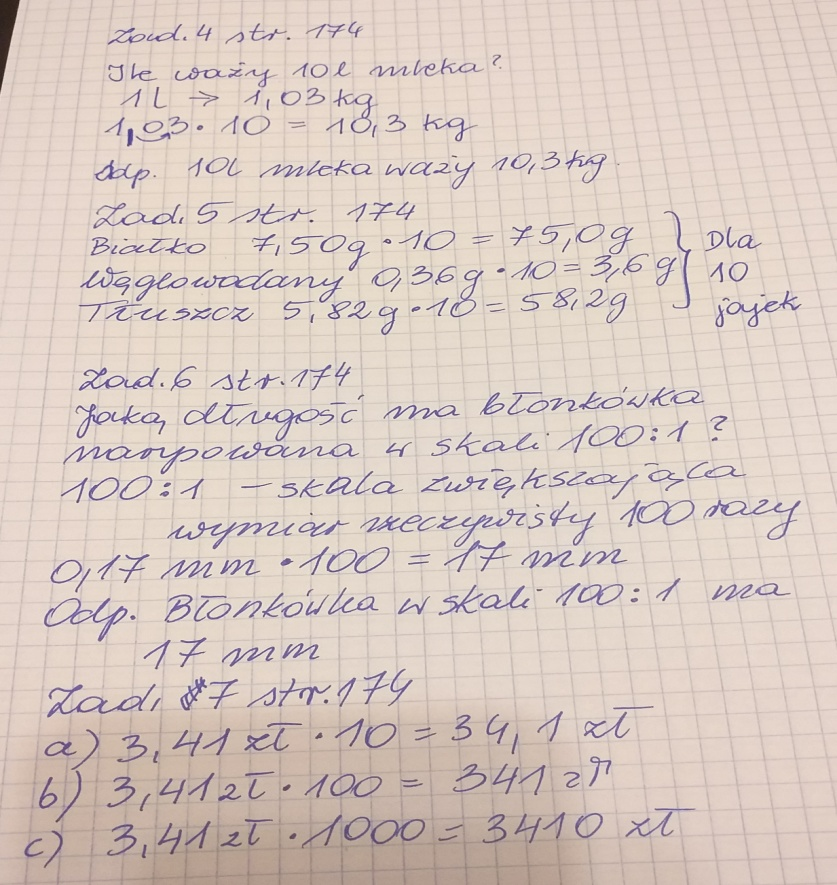 Zad. 4 str. 174
Ile waży 10l mleka?
1l → 1,03 kg
1,03 · 10 = 10,3 kg
Odp. 10l mleka waży 10,3 kg.
Zad. 5 str. 174
Białko 7,50g · 10 = 75,0g
Węglowodany 0,36g · 10 = 3,6 g
Tłuszcz 5,82g · 10 = 58,2g
} Dla
10
jajek
Zad. 6 str. 174
Jaką długość ma błonkówka
narysowana w skali 100:1 ?
100:1 – skala zwiększająca
wymiar rzeczywisty 100 razy
0,17 mm · 100 = 17 mm
Odp. Błonkówka w skali 100:1 ma
17 mm
Zad. 7 str. 174
a) 3,41 zł · 10 = 34,1 zł
b) 3,41 zł · 100 = 341 zł
c) 3,41 zł · 1000 = 3410 zł